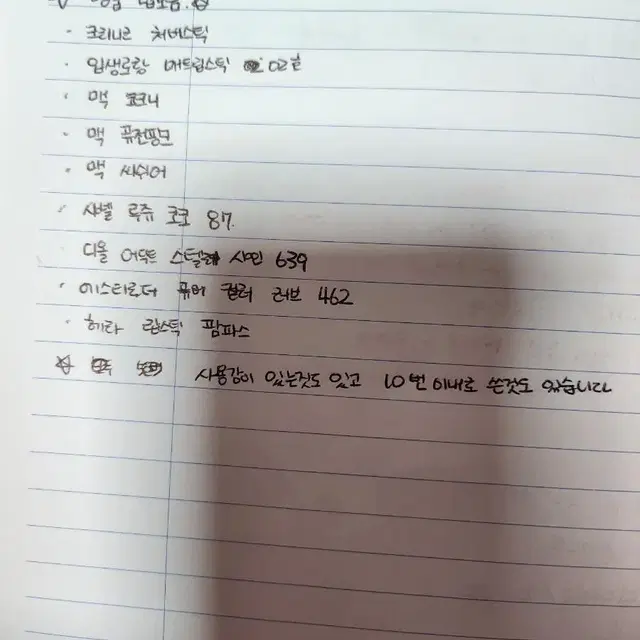 · 크리니크 처비스틱
· 입생로랑 매트립스틱 02호
· 맥 코크니
· 맥 퓨전핑크
· 맥 씨쉬어
· 샤넬 루쥬 코코 87.
디올 어딕트 스텔라 샤인 639
· 에스티로더 퓨어 컬러 러브 462
· 헤라 립스틱 팜파스
사용감이 있는것도 있고 10번 이내로 쓴것도 있습니다